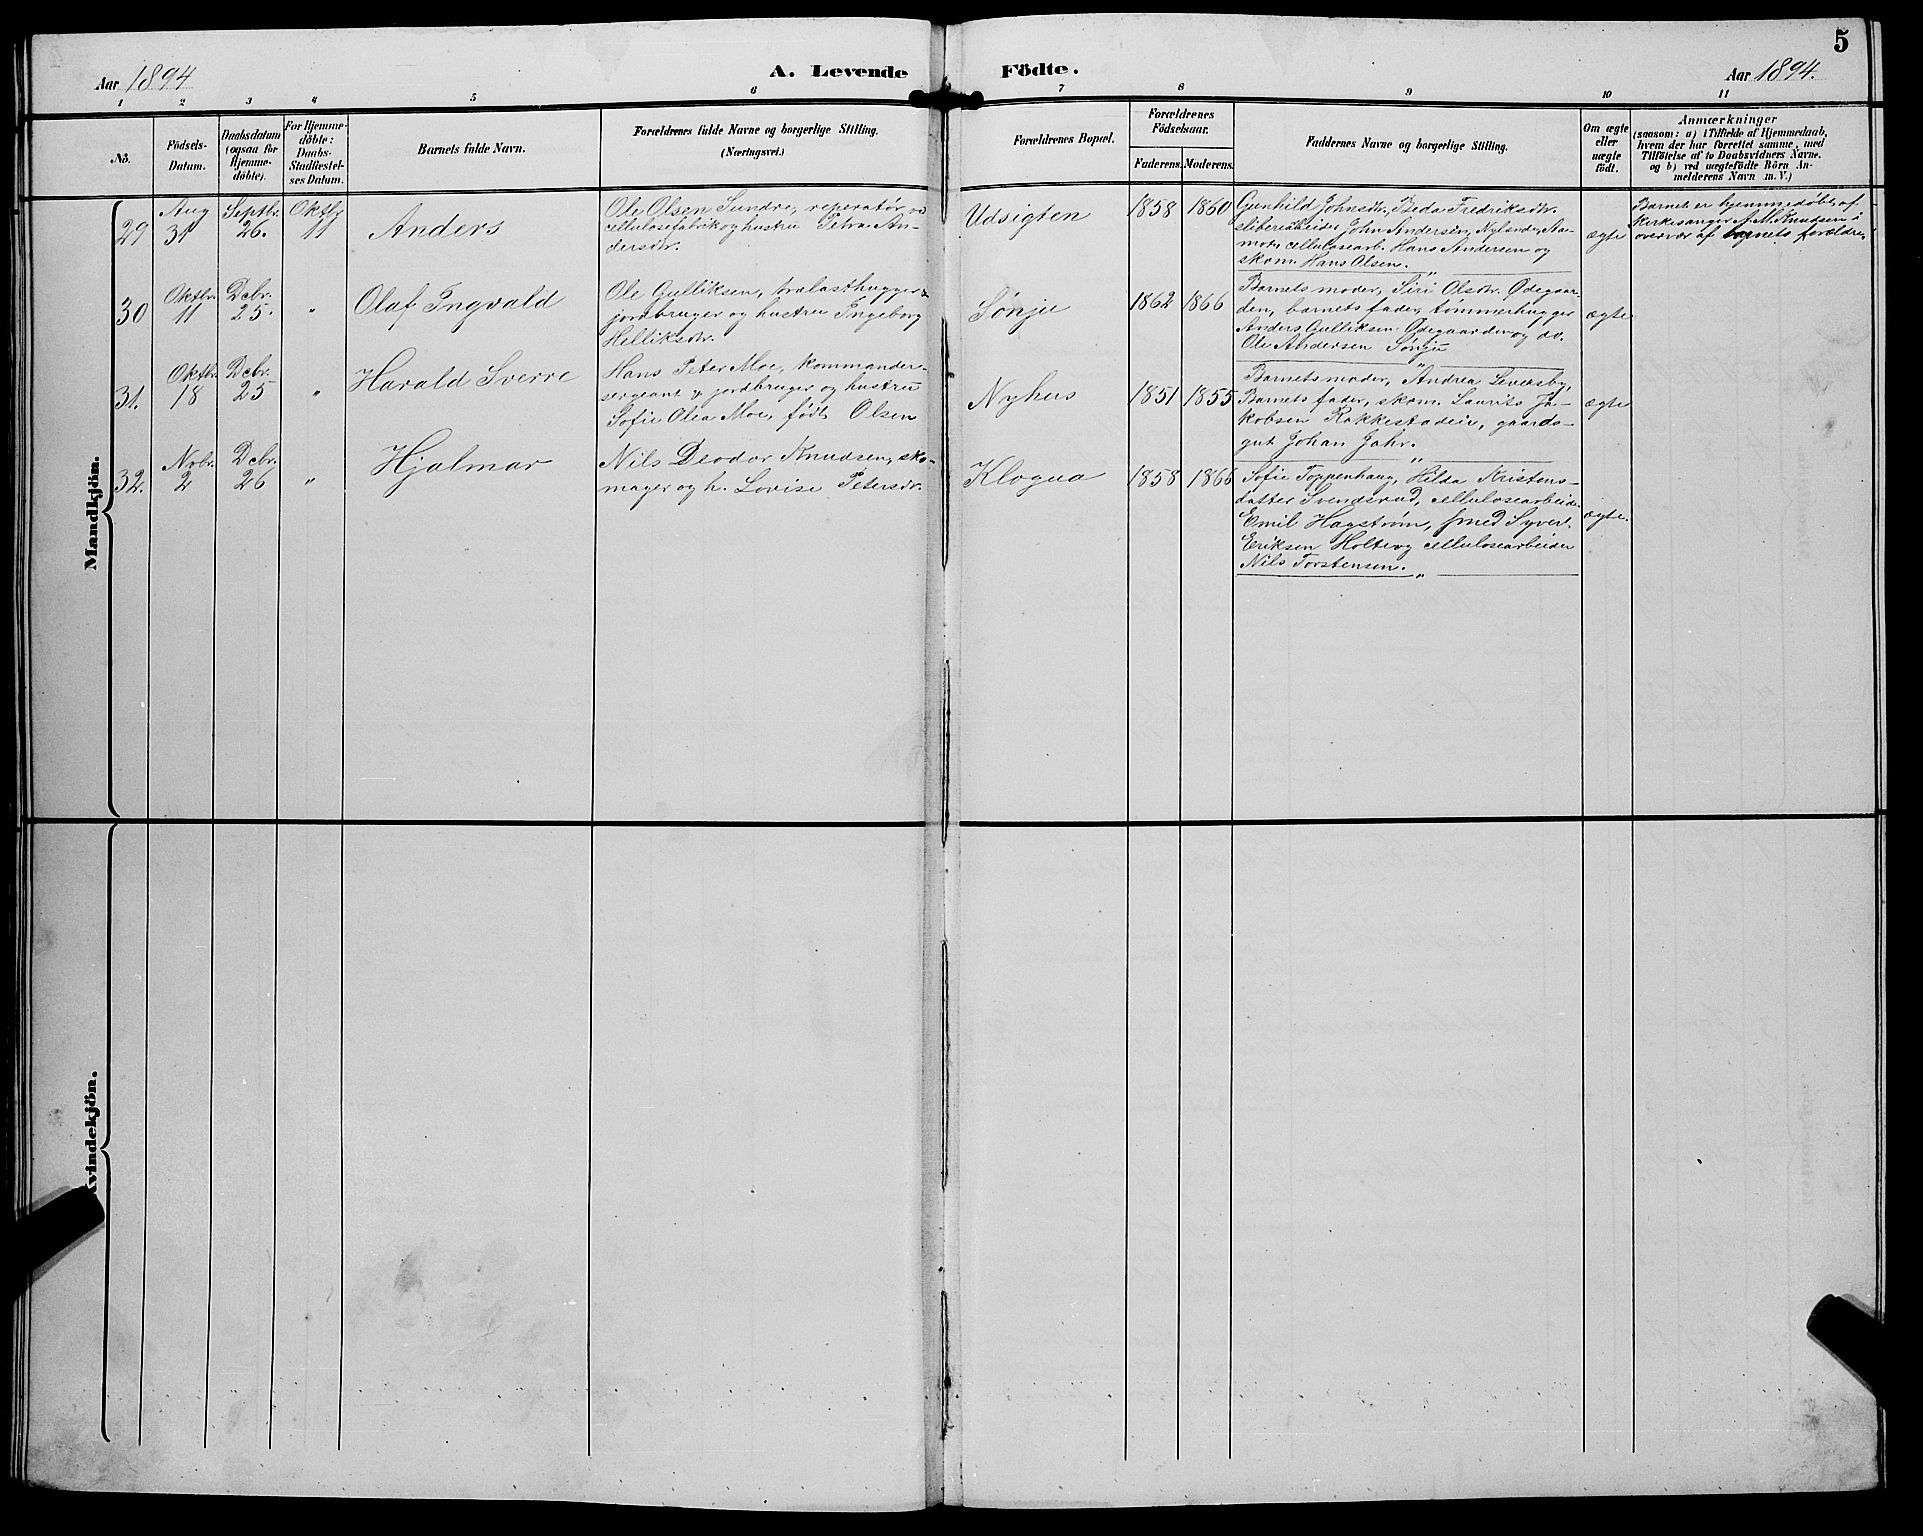 5
Aar 1894
A. Levende Födte.
Aar 1894.
1 2 3 4 5 6 7 8 9 10 11
No.
Födsels-
Datum.
Daabsdatum
(ogsaa for
Hjemme-
döbte).
For Hjemme-
döbte:
Daabs-
Stadfæstel-
ses Datum.
Barnets fulde Navn.
Forældrenes fulde Navne og borgerlige Stilling.
(Næringsvei.)
Forældrenes Bopæl.
Forældrenes
Födselsaar.
Faderens. Moderens.
Faddernes Navne og borgerlige Stilling.
Om ægte
eller
uægte
födt.
Anmærkninger
(saasom: a) i Tilfælde af Hjemmedaab,
hvem der har forrettet samme, med
Tilföielse af to Daabsvidners Navne,
og b) ved uægtefödte Börn An-
melderens Navn m. V.)
Mandkjön.
29
Aug
31
Septbr.
26.
Oktbr
11
Anders
Ole Olsen Sundre, reperatør ve
cellulosefabrik og hustru Petra An-
dersdtr.
Udsigten
1858 1860
Gunhild Johnsdtr. Beda Fredriksdtr.
sliberiabeider John Andersen, Nylands, Aa-
mot, cellulosearb. Hans Andersen og
skom. Hans Olsen.
ægte
Barnet er hjemmedøbt af
kirkesanger A. M. Knudsen i
overvær af barnets forældre.
30
Oktbr.
11
Dcbr.
25.
"
Olaf Ingvald
Ole Gulliksen, trælasthugger &
jordbruger og hustru Ingeborg
Helliksdtr.
Sønju
1862 1866
Barnets moder, Siri Olsdtr. Ødegaar-
den, barnets fader, tømmerhugger
Anders Gulliksen Ødegaarden og do.
Ole Andersen Sønju
ægte
31.
Oktbr.
18
Dcbr.
25
"
Harald Sverre
Hans Peter Moe, kommander-
sergeant & jordbruger og hustru
Sofie Olea Moe, født Olsen
Nyhus
1851 1855
Barnets moder, Andrea Leversby,
Barnets fader, skom. Laurits Ja-
kobsen Rakkestadeie, gaards-
gut Johan Jahr.
ægte
32.
Nvbr.
2
Dcbr.
26
"
Hjalmar
Nils Deodor Knudsen, sko-
mager og h. Lovise Petersdtr.
Klogua
1858 1866
Sofie Toppenhaug, Hilda Kristens-
datter Svendsrud, cellulosearbeider
Emil Hagstrøm, smed Syvert
Eriksen Holt og cellulosearbeider
Nils Torstensen.
ægte.
Kvindekjön.